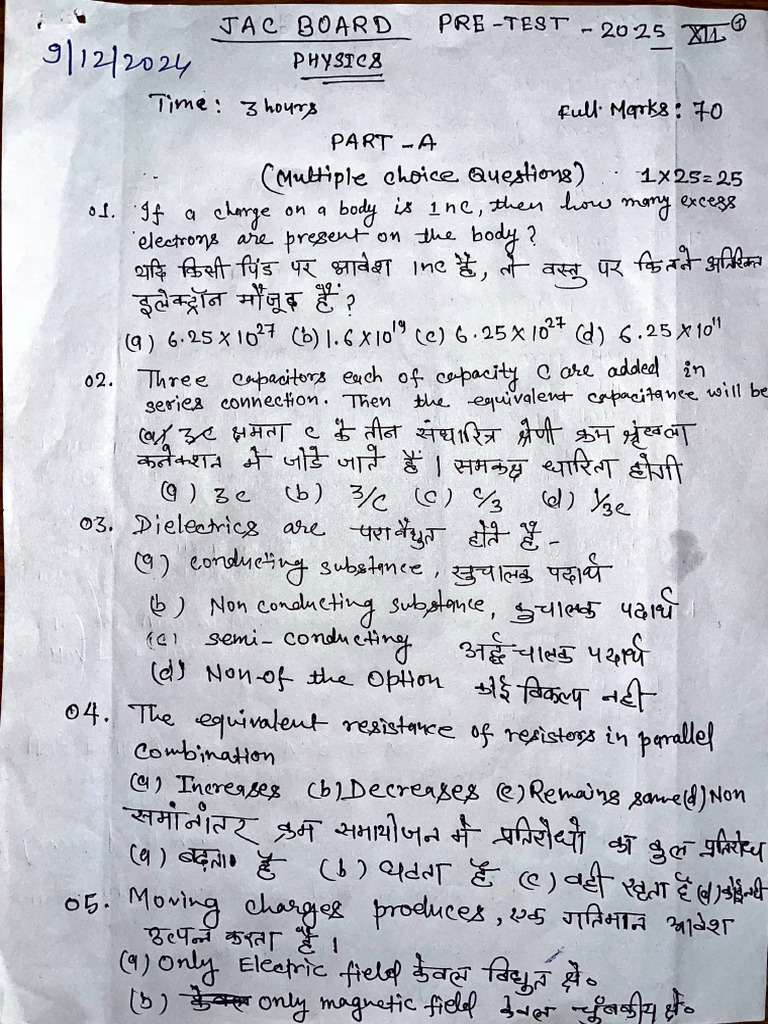 JAC BOARD PRE-TEST - 2025 XII 1
9/12/2024
PHYSICS
Time: 3 hours Full Marks: 70
PART -A
(Multiple choice Questions) 1X25=25
01. If a charge on a body is 1nc, then how many excess
electrons are present on the body?
यदि किसी पिंड पर आवेश 1nc है, तो वस्तु पर कितने अतिरिक्त
इलेक्ट्रॉन मौजूद हैं?
(a) 6.25X10²⁷ (b) 1.6X10¹⁹ (c) 6.25X10²⁷ (d) 6.25X10¹¹
02. Three capacitors each of capacity C are added in
series connection. Then the equivalent capacitance will be
(a) 3/c क्षमता c के तीन संधारित्र श्रेणी क्रम श्रृंखला
कनेक्शन में जोडे जाते हैं। समकक्ष धारिता होगी
(a) 3c (b) 3/c (c) c/3 (d) 1/3c
03. Dielectrics are परावैधुत होते हैं -
(a) conducting substance, सुचालक पदार्थ
(b) Non conducting substance, कुचालक पदार्थ
(c) semi-conducting अर्द्धचालक पदार्थ
(d) Non-of the Option कोई विकल्प नही
04. The equivalent resistance of resistors in parallel
combination
(a) Increases (b) Decreases (c) Remains same (d) Non
समांनांतर क्रम समायोजन में प्रतिरोधो का कुल प्रतिरोध
(a) बढ़ता है (b) घटता है (c) वही रहता है (d) कोई नही
05. Moving charges produces, एक गतिमान आवेश
उत्पन्न करता है।
(a) Only Electric field केवल विद्युत क्षे०
(b) केवल only magnetic field केवल चुंबकीय क्षे०